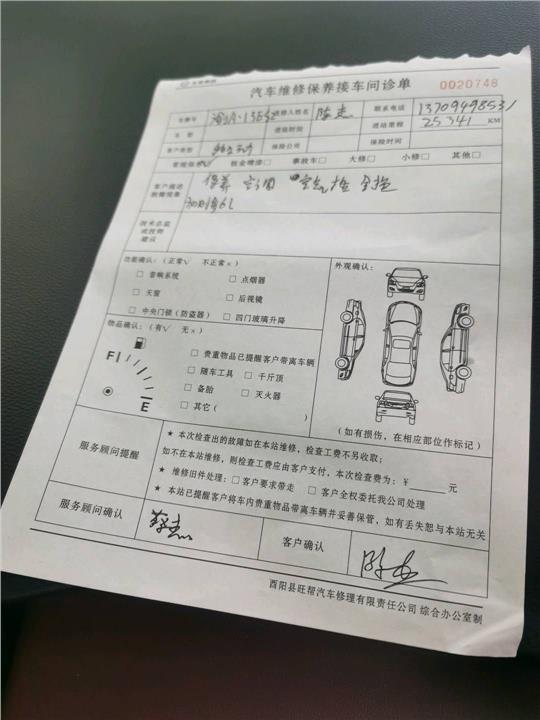 汽车维修保养接车问诊单
0020748
车牌号
送修人姓名
陈杰
联系电话
13709498531
车型
进站时间
进站里程
25341 KM
客户类型
保险公司
保险时间
常规保养√ 钣金喷漆□ 事故车□ 大修□ 小修□ 其他□
客户描述
故障现象
保养 空调 空气格 全检
技术总监
或技师
建议
功能确认:(正常√ 不正常×)
□ 音响系统 □ 点烟器
□ 天窗 □ 后视镜
□ 中央门锁(防盗器) □ 四门玻璃升降
外观确认:
(如有损伤,在相应部位作标记)
物品确认:(有√ 无×)
F
E
□ 贵重物品已提醒客户带离车辆
□ 随车工具 □ 千斤顶
□ 备胎 □ 灭火器
□ 其它( )
服务顾问提醒
★ 本次检查出的故障如在本站维修,检查工费不另收取;
如不在本站维修,则检查工费应由客户支付,本次检查费为:¥ 元
★ 维修旧件处理:□ 客户要求带走 □ 客户全权委托我公司处理
★ 本站已提醒客户将车内贵重物品带离车辆并妥善保管,如有丢失恕与本站无关
服务顾问确认
客户确认
酉阳县旺帮汽车修理有限责任公司 综合办公室制